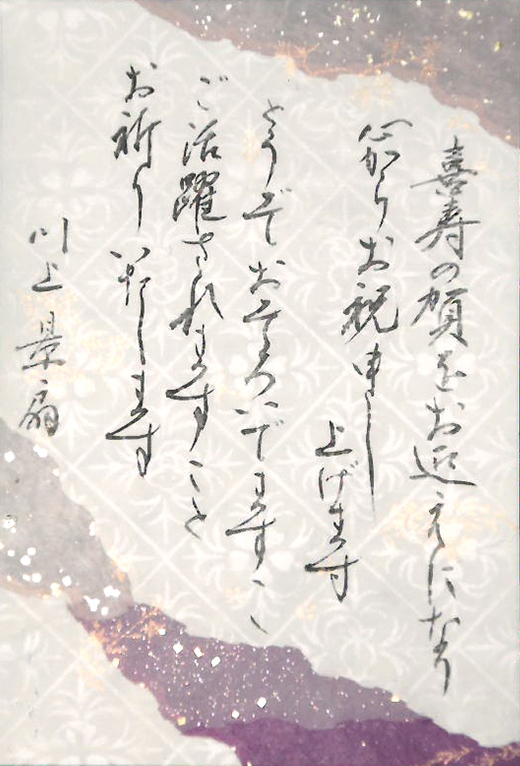 喜寿の賀をお迎えになり
心からお祝申し
上げます
どうぞおそろいでますご
ご活躍されますこと
お祈り いたします
川上景扇